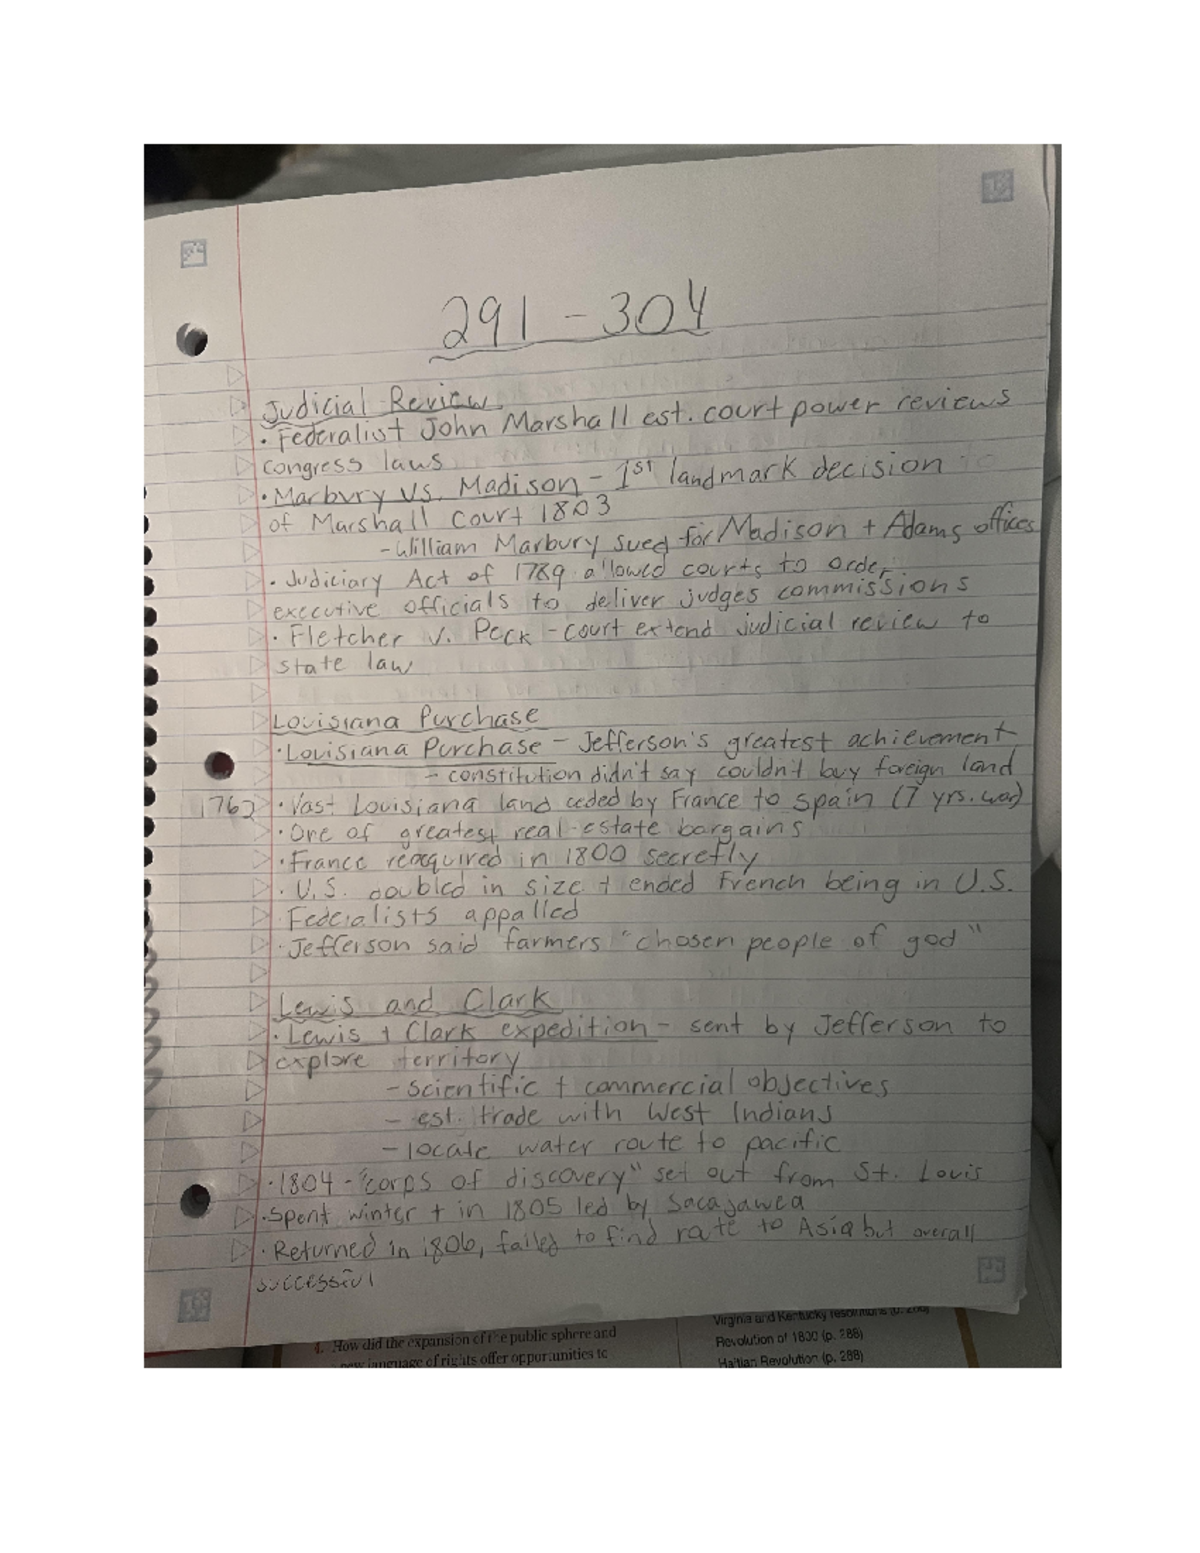 291 - 304
Judicial Review
• Federalist John Marshall est. court power reviews
congress laws
• Marbury vs. Madison - 1st landmark decision
of Marshall Court 1803
- William Marbury sued for Madison + Adams offices
• Judiciary Act of 1789 allowed courts to order
executive officials to deliver judges commissions
• Fletcher v. Peck - court extend judicial review to
state law
Louisiana Purchase
• Louisiana Purchase - Jefferson's greatest achievement
- constitution didn't say couldn't buy foreign land
1762 • Vast Louisiana land ceded by France to Spain (7 yrs. war)
• One of greatest real-estate bargains
• France reacquired in 1800 secretly
• U.S. doubled in size + ended French being in U.S.
• Federalists appalled
• Jefferson said farmers "chosen people of god"
Lewis and Clark
• Lewis + Clark expedition - sent by Jefferson to
explore territory
- scientific + commercial objectives
- est. trade with West Indians
- locate water route to pacific
• 1804 - "corps of discovery" set out from St. Louis
• Spent winter + in 1805 led by Sacajawea
• Returned in 1806, failed to find rate to Asia but overall
successful
4. How did the expansion of the public sphere and
new language of rights offer opportunities to
Virginia and Kentucky resolutions
Revolution of 1800 (p. 288)
Haitian Revolution (p. 288)